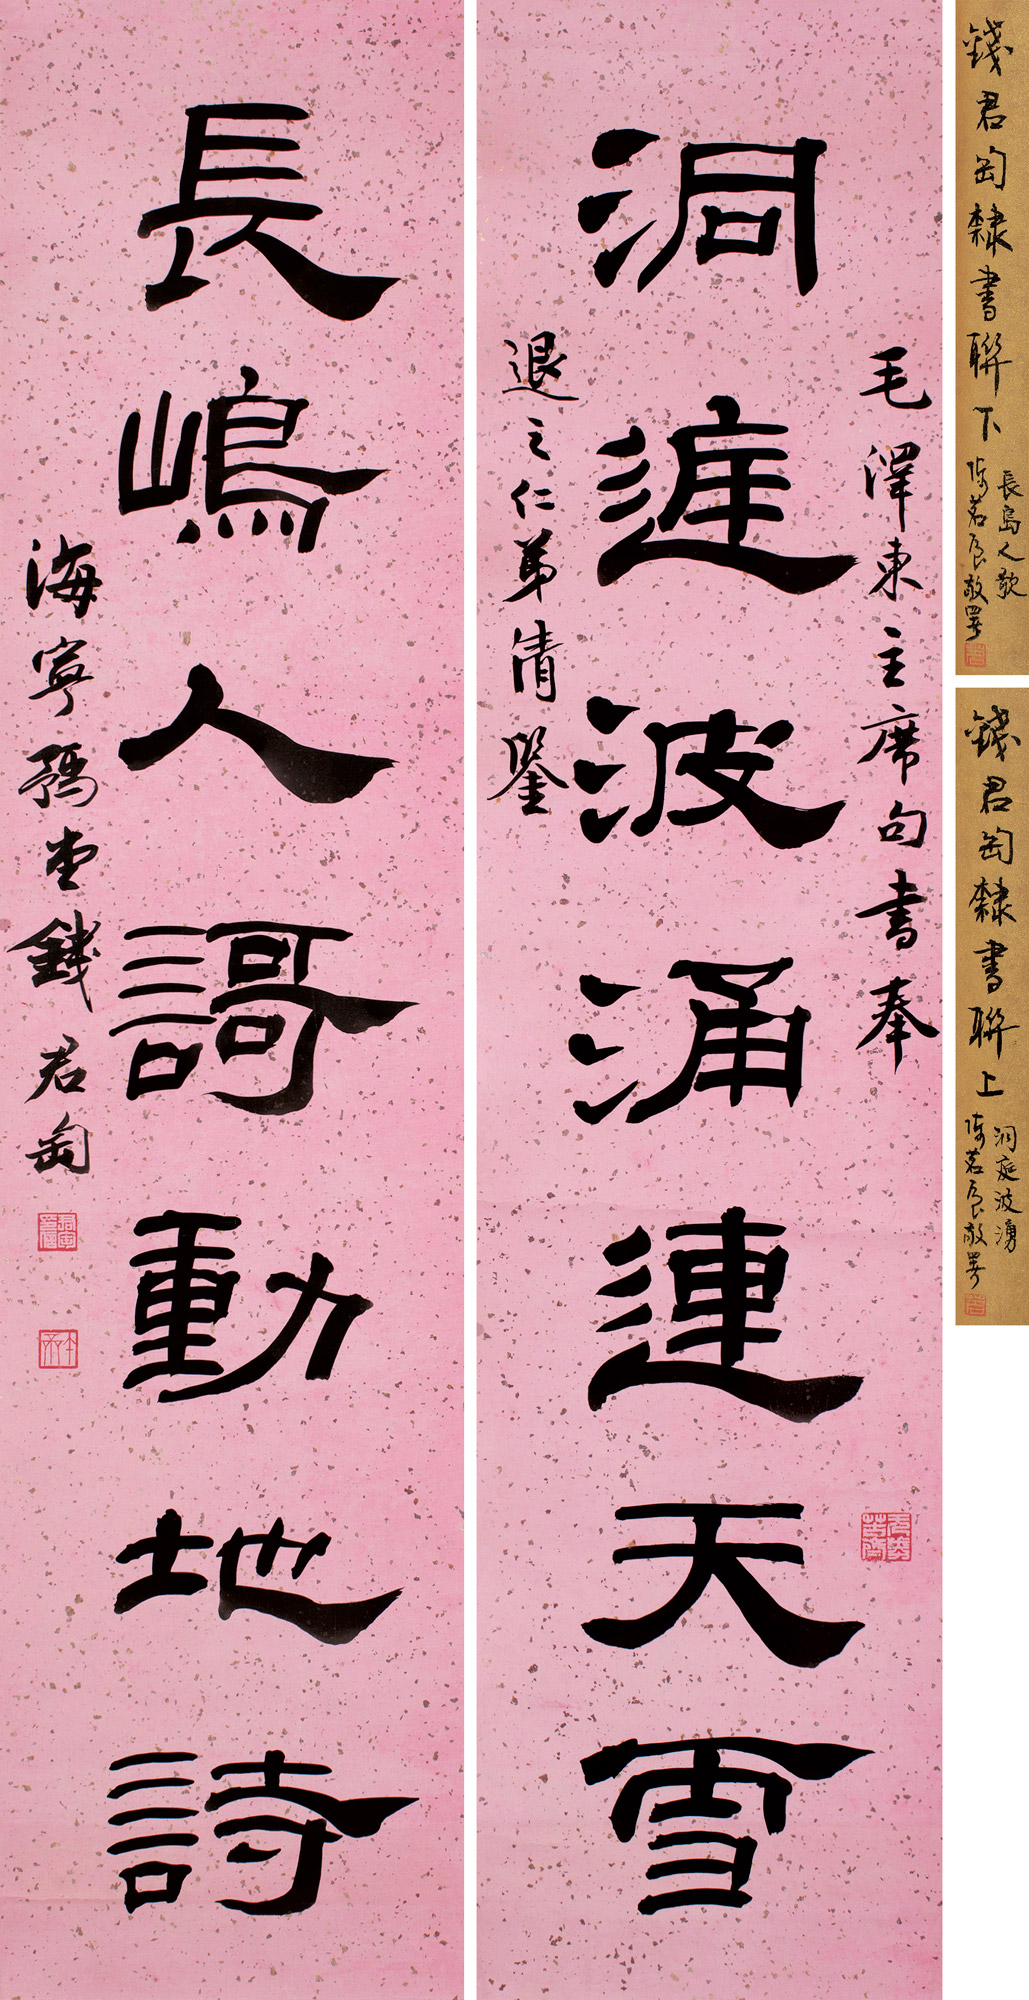 洞庭波涌連天雪
毛澤東主席句書奉
退之仁弟清鑒
長嶋人謌動地詩
海寧
錢君匋
錢君匋隸書聯下
長島人歌
陳茗屋敬署
錢君匋隸書聯上
洞庭波湧
陳茗屋敬署